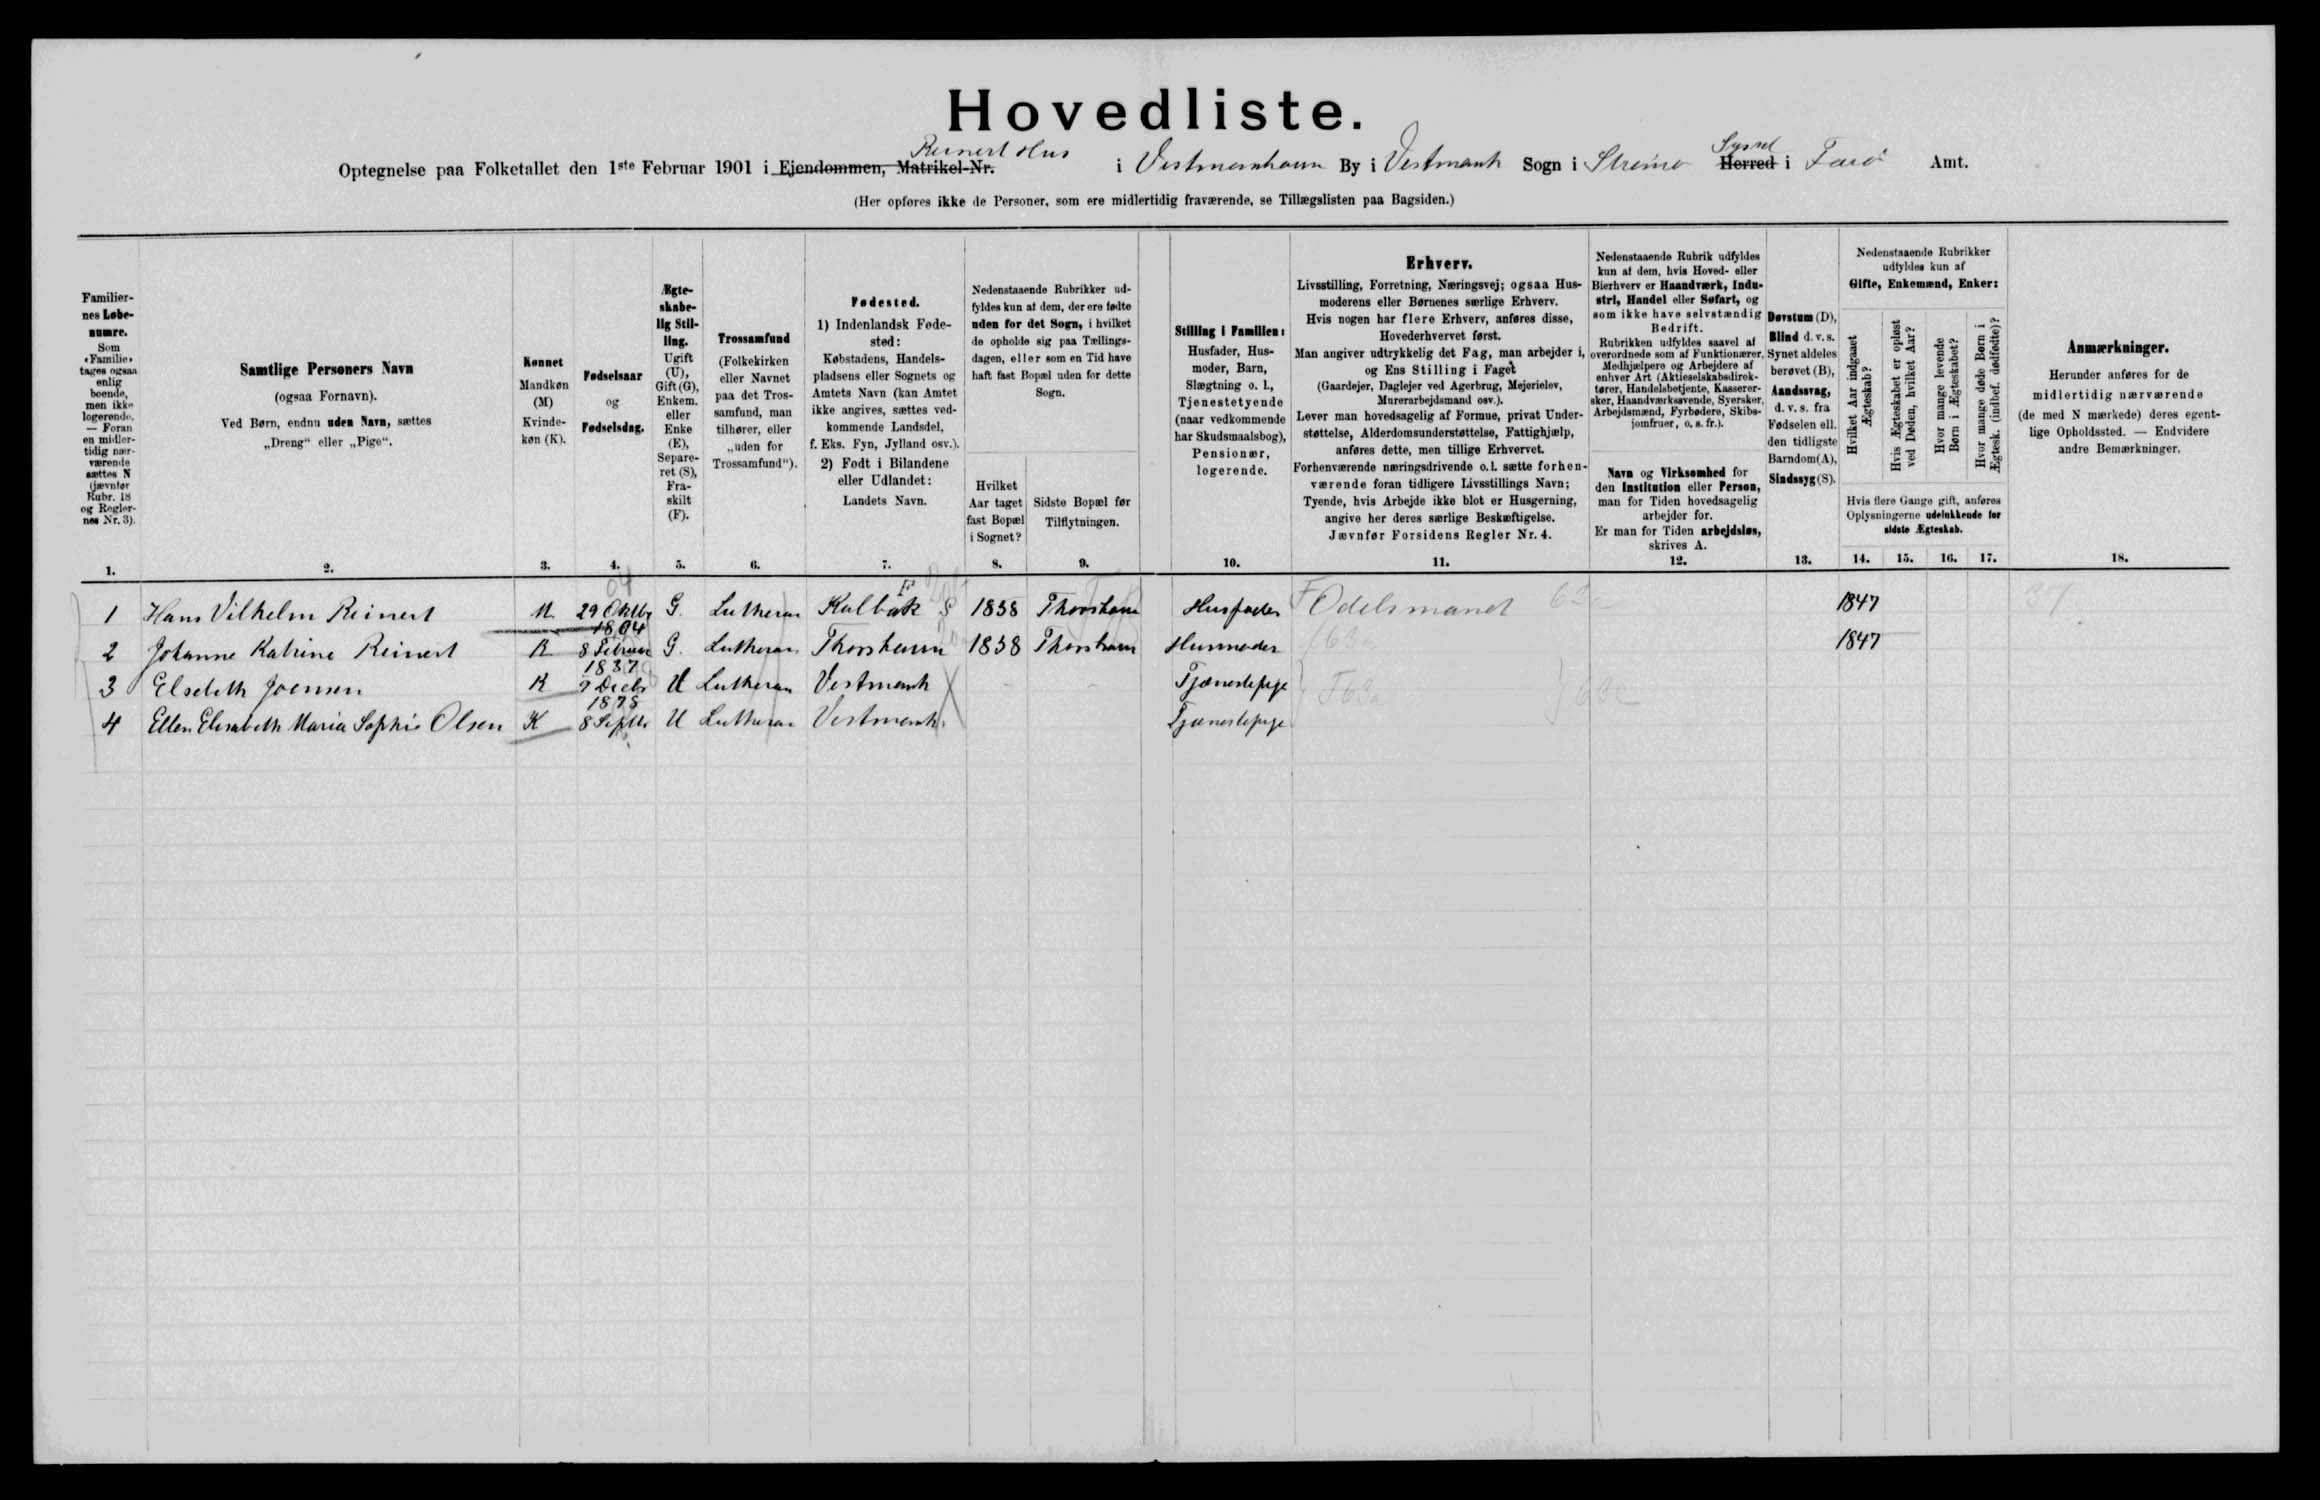 Hovedliste.
Optegnelse paa Folketallet den 1ste Februar 1901 i Ejendommen, Matrikel-Nr. Reinert Hus i Vestmanhavn By i Vestmanh Sogn i Strømø Herred Syssel i Færø Amt.
(Her opføres ikke de Personer, som ere midlertidig fraværende, se Tillægslisten paa Bagsiden.)
Familiernes Løbenumre.
Som «Familie» tages ogsaa enlig boende, men ikke logerende. — Foran en midlertidig nærværende sættes N (jævnfør Rubr. 18 og Reglernes Nr. 3).
Samtlige Personers Navn
(ogsaa Fornavn).
Ved Børn, endnu uden Navn, sættes
„Dreng“ eller „Pige“.
Kønnet
Mandkøn (M)
Kvindekøn (K).
Fødselsaar
og
Fødselsdag.
Ægteskabelig Stilling.
Ugift (U), Gift (G), Enkem. eller Enke (E), Separeret (S), Fraskilt (F).
Trossamfund
(Folkekirken eller Navnet paa det Trossamfund, man tilhører, eller „uden for Trossamfund“).
Fødested.
1) Indenlandsk Fødested:
Købstadens, Handelspladsens eller Sognets og Amtets Navn (kan Amtet ikke angives, sættes vedkommende Landsdel, f. Eks. Fyn, Jylland osv.).
2) Født i Bilandene eller Udlandet:
Landets Navn.
Nedenstaaende Rubrikker udfyldes kun af dem, der ere fødte uden for det Sogn, i hvilket de opholde sig paa Tællingsdagen, eller som en Tid have haft fast Bopæl uden for dette Sogn.
Hvilket Aar taget fast Bopæl i Sognet?
Sidste Bopæl før Tilflytningen.
Stilling i Familien:
Husfader, Husmoder, Barn, Slægtning o. l., Tjenestetyende (naar vedkommende har Skudsmaalsbog), Pensionær, logerende.
Erhverv.
Livsstilling, Forretning, Næringsvej; ogsaa Husmoderens eller Børnenes særlige Erhverv.
Hvis nogen har flere Erhverv, anføres disse, Hovederhvervet først.
Man angiver udtrykkelig det Fag, man arbejder i, og Ens Stilling i Faget
(Gaardejer, Daglejer ved Agerbrug, Mejerielev, Murerarbejdsmand osv.).
Lever man hovedsagelig af Formue, privat Understøttelse, Alderdomsunderstøttelse, Fattighjælp, anføres dette, men tillige Erhvervet.
Forhenværende næringsdrivende o. l. sætte forhenværende foran tidligere Livsstillings Navn;
Tyende, hvis Arbejde ikke blot er Husgerning, angive her deres særlige Beskæftigelse.
Jævnfør Forsidens Regler Nr. 4.
Nedenstaaende Rubrik udfyldes kun af dem, hvis Hoved- eller Bierhverv er Haandværk, Industri, Handel eller Søfart, og som ikke have selvstændig Bedrift.
Rubrikken udfyldes saavel af overordnede som af Funktionærer, Medhjælpere og Arbejdere af enhver Art (Aktieselskabsdirektører, Handelsbetjente, Kasserersker, Haandværkssvende, Syersker, Arbejdsmænd, Fyrbødere, Skibsjomfruer, o. s. fr.).
Navn og Virksomhed for den Institution eller Person, man for Tiden hovedsagelig arbejder for.
Er man for Tiden arbejdsløs, skrives A.
Døvstum (D), Blind d. v. s. Synet aldeles berøvet (B), Aandssvag, d. v. s. fra Fødselen ell. den tidligste Barndom (A), Sindssyg (S).
Nedenstaaende Rubrikker udfyldes kun af
Gifte, Enkemænd, Enker:
Hvilket Aar indgaaet Ægteskab?
Hvis Ægteskabet er opløst ved Døden, hvilket Aar?
Hvor mange levende Børn i Ægteskabet?
Hvor mange døde Børn i Ægtesk. (indbef. dødfødte)?
Hvis flere Gange gift, anføres Oplysningerne udelukkende for sidste Ægteskab.
Anmærkninger.
Herunder anføres for de midlertidig nærværende (de med N mærkede) deres egentlige Opholdssted. — Endvidere andre Bemærkninger.
1. 2. 3. 4. 5. 6. 7. 8. 9. 10. 11. 12. 13. 14. 15. 16. 17. 18.
1 Hans Vilhelm Reinert M 29 Oktbr G. Lutheran Kalbak 1858 Thorshavn Husfader Odelsmand 1847
2 Johanne Katrine Reinert K 1804 8 Februar G. Lutheran Thorshavn 1858 Thorshavn Husmoder 1847
3 Elsebeth Joensen K 1837 9 Decbr U Lutheran Vestmanh - - Tjænestepige F 63a
4 Ellen Elisabeth Maria Sophie Olsen K 1878 8 Septbr U Lutheran Vestmanh. Tjænestepige